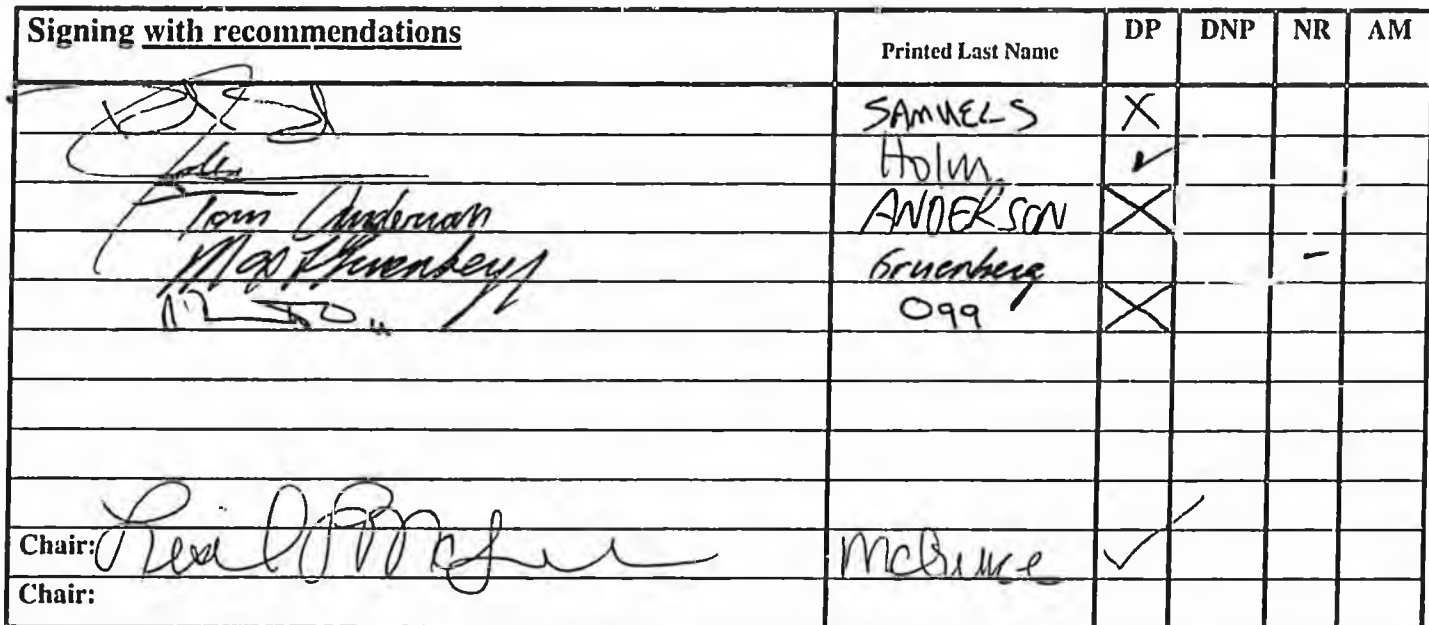 Signing with recommendations Printed Last Name DP DNP NR AM
SAMUELS X
Holm. ✓
Tom Anderson ANDERSON X
Max Gruenberg Gruenberg -
Ogg X
Chair: McGuire ✓
Chair: